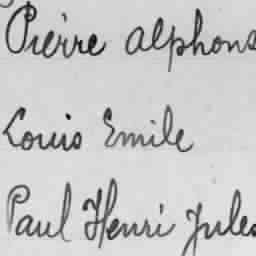 Pierre Alphons
Louis Emile
Paul Henri Jules